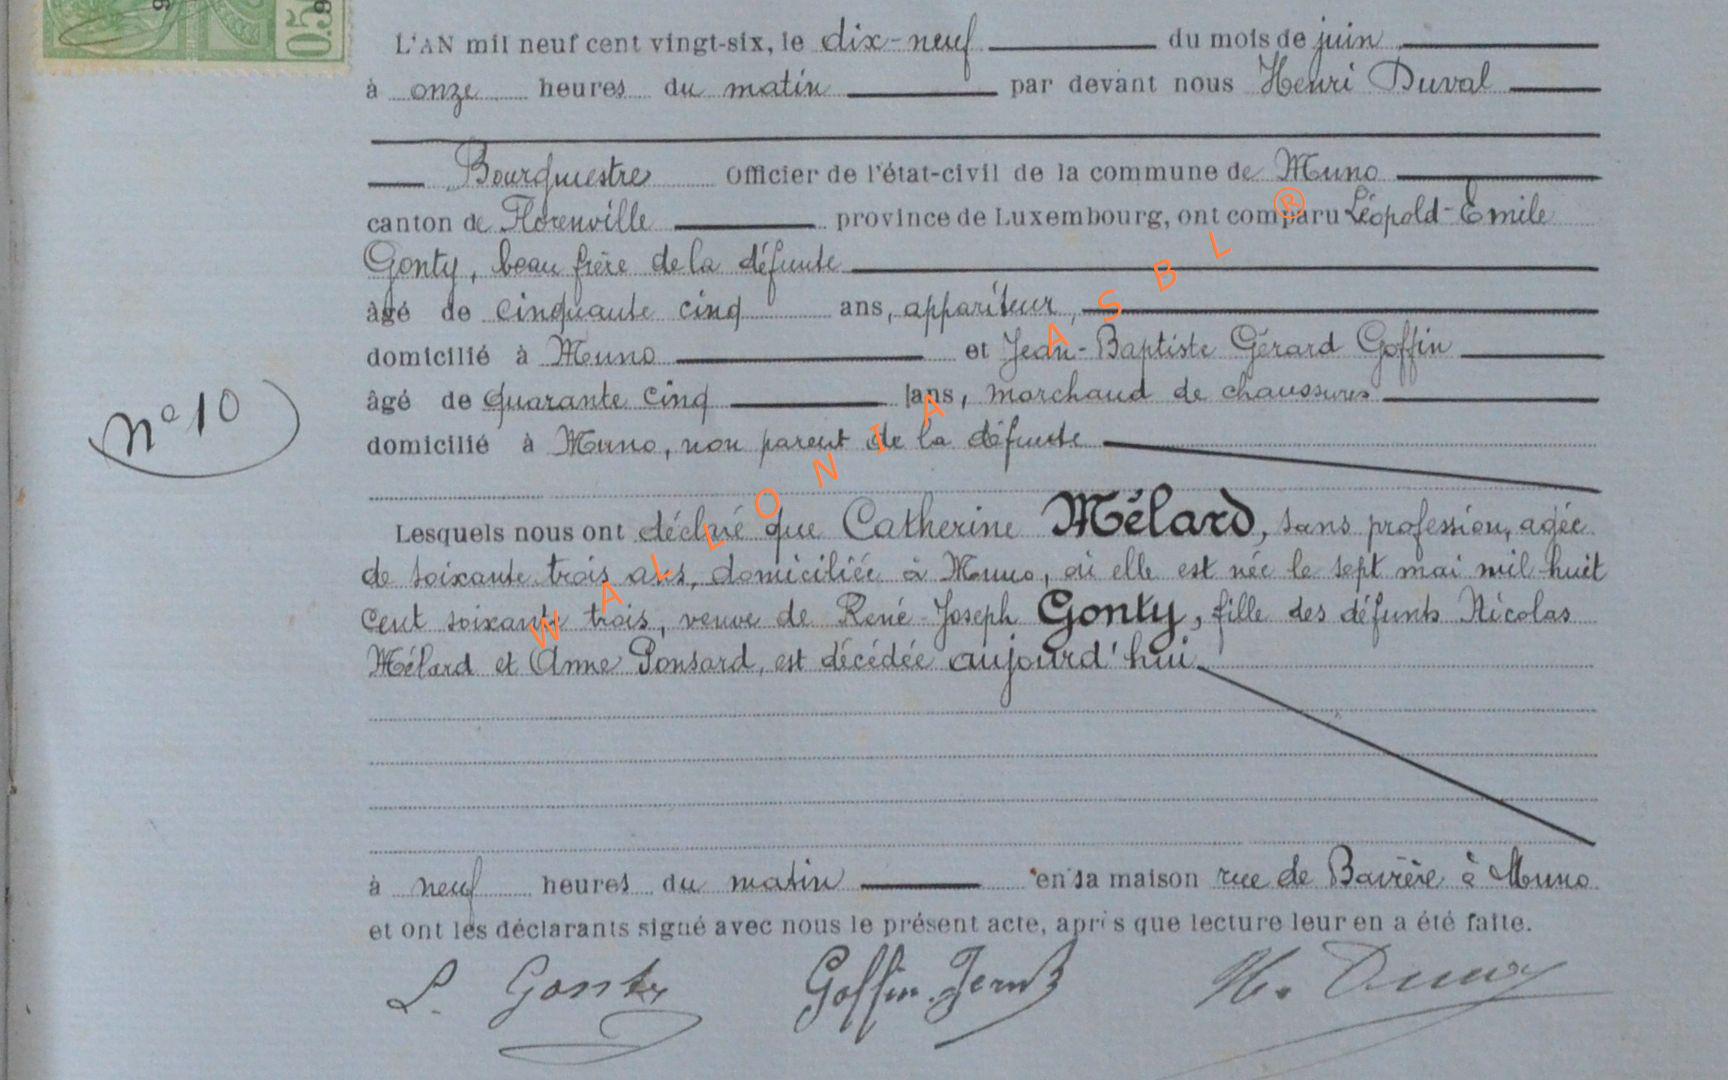 0.5
L'AN mil neuf cent vingt-six, le dix-neuf du mois de juin
à onze heures du matin par devant nous Henri Duval
Bourgmestre Officier de l'état-civil de la commune de Muno
canton de Florenville province de Luxembourg, ont comparu Léopold-Emile
Gonty, beau frère de la défunte
âgé de cinquante cinq ans, appariteur,
domicilié à Muno et Jean-Baptiste Gérard Goffin
âgé de quarante cinq ans, marchand de chaussures
n° 10
domicilié à Muno, non parent de la défunte
Lesquels nous ont déclaré que Catherine Mélard, sans profession, agée
de soixante trois ans, domiciliée à Muno, où elle est née le sept mai mil huit
cent soixante trois, veuve de René-Joseph Gonty, fille des défunts Nicolas
Mélard et Anne Ponsard, est décédée aujourd'hui
à neuf heures du matin en sa maison rue de Bavière à Muno
et ont les déclarants signé avec nous le présent acte, après que lecture leur en a été faite.
L. Gonty Goffin Jean B H. Duval
WALLONIA ASBL ®